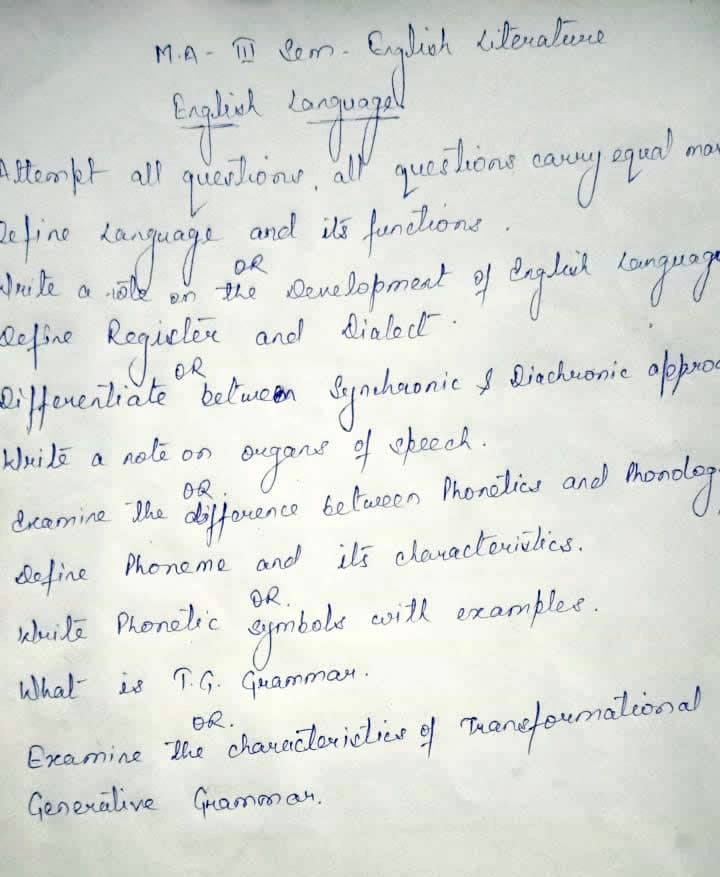 M.A - III Sem - English Literature
English Language
Attempt all questions, all questions carry equal mar
Define Language and its functions.
OR
Write a note on the Development of English Language
Define Register and Dialect.
OR
Differentiate between Synchronic & Diachronic approa
Write a note on organs of speech.
OR.
Examine the difference between Phonetics and Phonology
Define Phoneme and its characteristics.
OR.
Write Phonetic symbols with examples.
What is T.G. Grammar.
OR.
Examine the characteristics of Transformational
Generative Grammar.